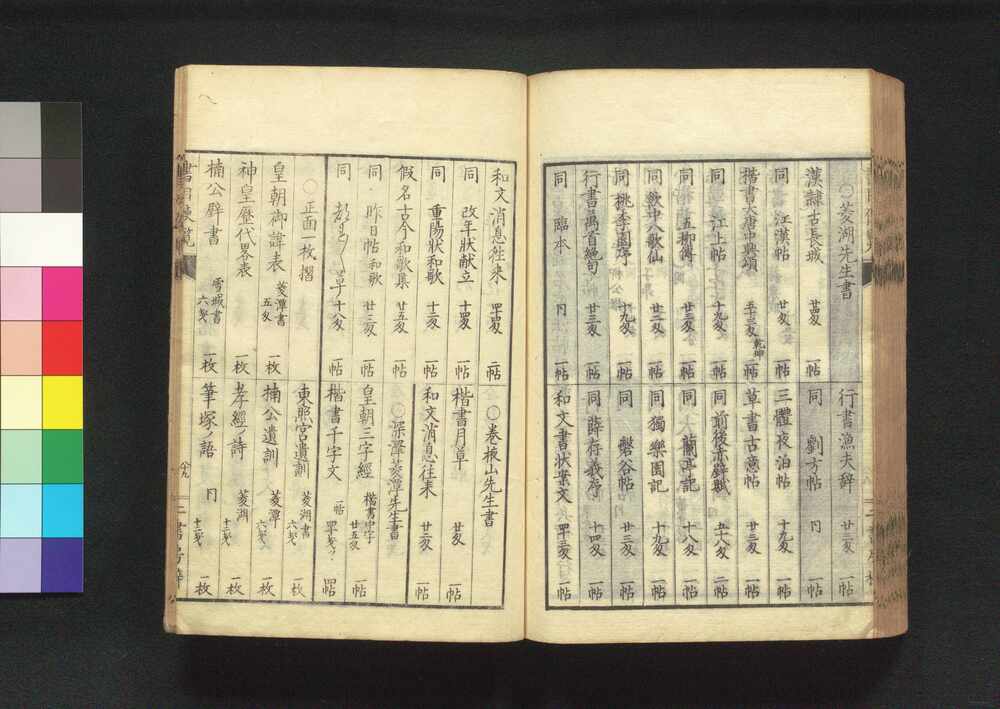 ○菱湖先生書
漢隷古長城 廿四匁 一帖
同 江漢帖 廿匁 一帖
楷書大唐中興頌 五十三匁 乾坤 一帖
同 江上帖 十九匁 一帖
同 五柳傳 廿三匁 一帖
同 飲中八歌仙 廿二匁 一帖
同 桃李園序 十九匁 一帖
行書萬首絶句 廿三匁 一帖
同 臨本 一帖
行書漁夫辞 廿三匁 一帖
同 劉方帖 一帖
三體夜泊帖 十九匁 一帖
草書古意帖 廿三匁 一帖
同 前後赤壁賦 五十八匁 二帖
同 大蘭亭記 十八匁 一帖
同 獨樂園記 十九匁 一帖
同 盤谷帖 廿三匁 一帖
同 薛存義序 十四匁 一帖
和文書状案文 四十三匁 一帖
和文消息往来 四十四匁 二帖
同 改年状献立 十四匁 一帖
同 重陽状和歌 十二匁 一帖
假名古今和歌集 廿五匁 一帖
同 昨日帖 和歌 廿三匁 一帖
同 十八匁 一帖
○正面一枚摺
皇朝御諱表 菱潭書 五匁 一枚
神皇歴代畧表 一枚
楠公壁書 雪城書 六匁 一枚
○巻菱山先生書
楷書月章 廿匁 一帖
和文消息往来 廿二匁 一帖
○深澤菱潭先生書
皇朝三字經 楷書中字 廿五匁 一帖
楷書千字文 一帖
東照宮遺訓 菱湖書 六匁 一枚
楠公遺訓 菱潭 六匁 一枚
孝經ノ詩 菱湖 十二匁 一枚
筆塚ノ語 十二匁 一枚